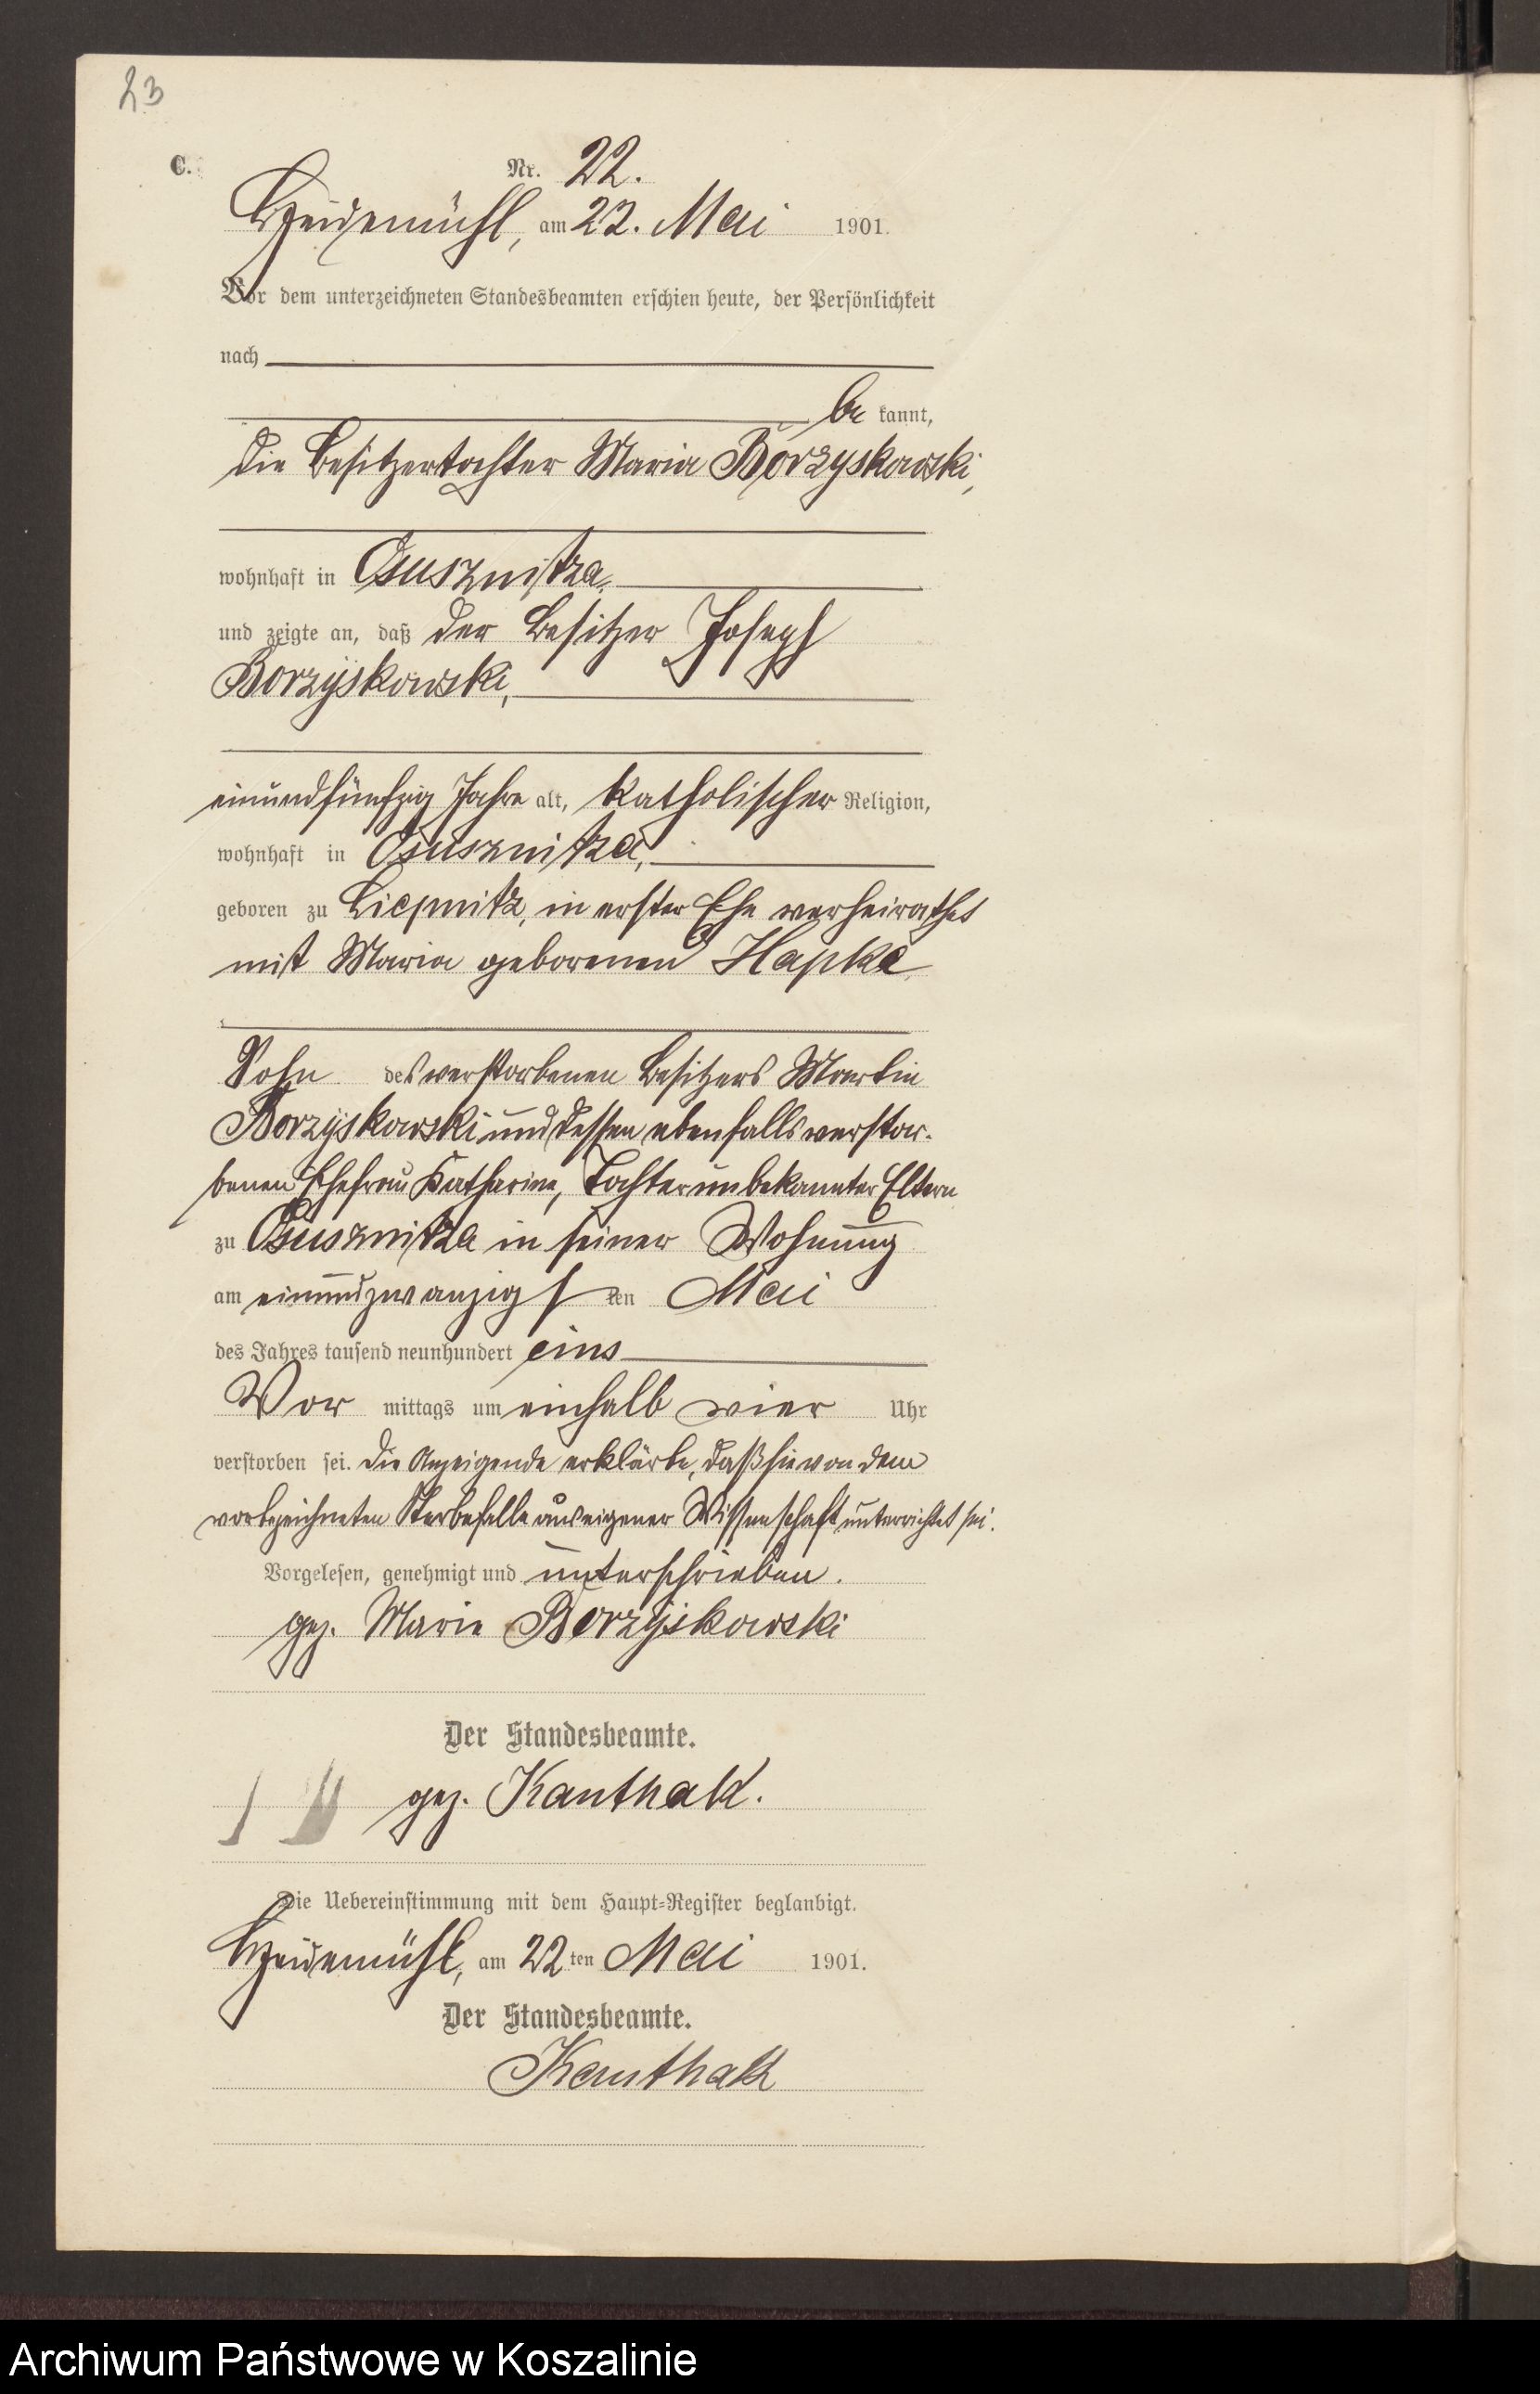 23
C.
Nr. 22.
Heidemühl, am 22. Mai 1901.
Vor dem unterzeichneten Standesbeamten erschien heute, der Persönlichkeit
nach
be kannt,
die Besitzertochter Maria Borzyskowski,
wohnhaft in Osusznitza,
und zeigte an, daß der Besitzer Joseph
Borzyskowski,
einundfünfzig Jahre alt, katholischer Religion,
wohnhaft in Osusznitza,
geboren zu Liepnitz, in erster Ehe verheirathet
mit Maria geborenen Hapke
Sohn des verstorbenen Besitzers Martin
Borzyskowski und dessen ebenfalls verstor-
benen Ehefrau Katharina, Tochter unbekannter Eltern
zu Osusznitza in seiner Wohnung
am einundzwanzigsten Mai
des Jahres tausend neunhundert eins
Vor mittags um einhalb vier Uhr
verstorben sei. Die Anzeigende erklärte, daß sie von dem
vorbezeichneten Sterbefalle aus eigener Wissenschaft unterrichtet sei.
Vorgelesen, genehmigt und unterschrieben.
gez. Marie Borzyskowski
Der Standesbeamte.
gez. Kanthak.
Die Uebereinstimmung mit dem Haupt-Register beglaubigt.
Heidemühl, am 22 ten Mai 1901.
Der Standesbeamte.
Kanthak
Archiwum Państwowe w Koszalinie